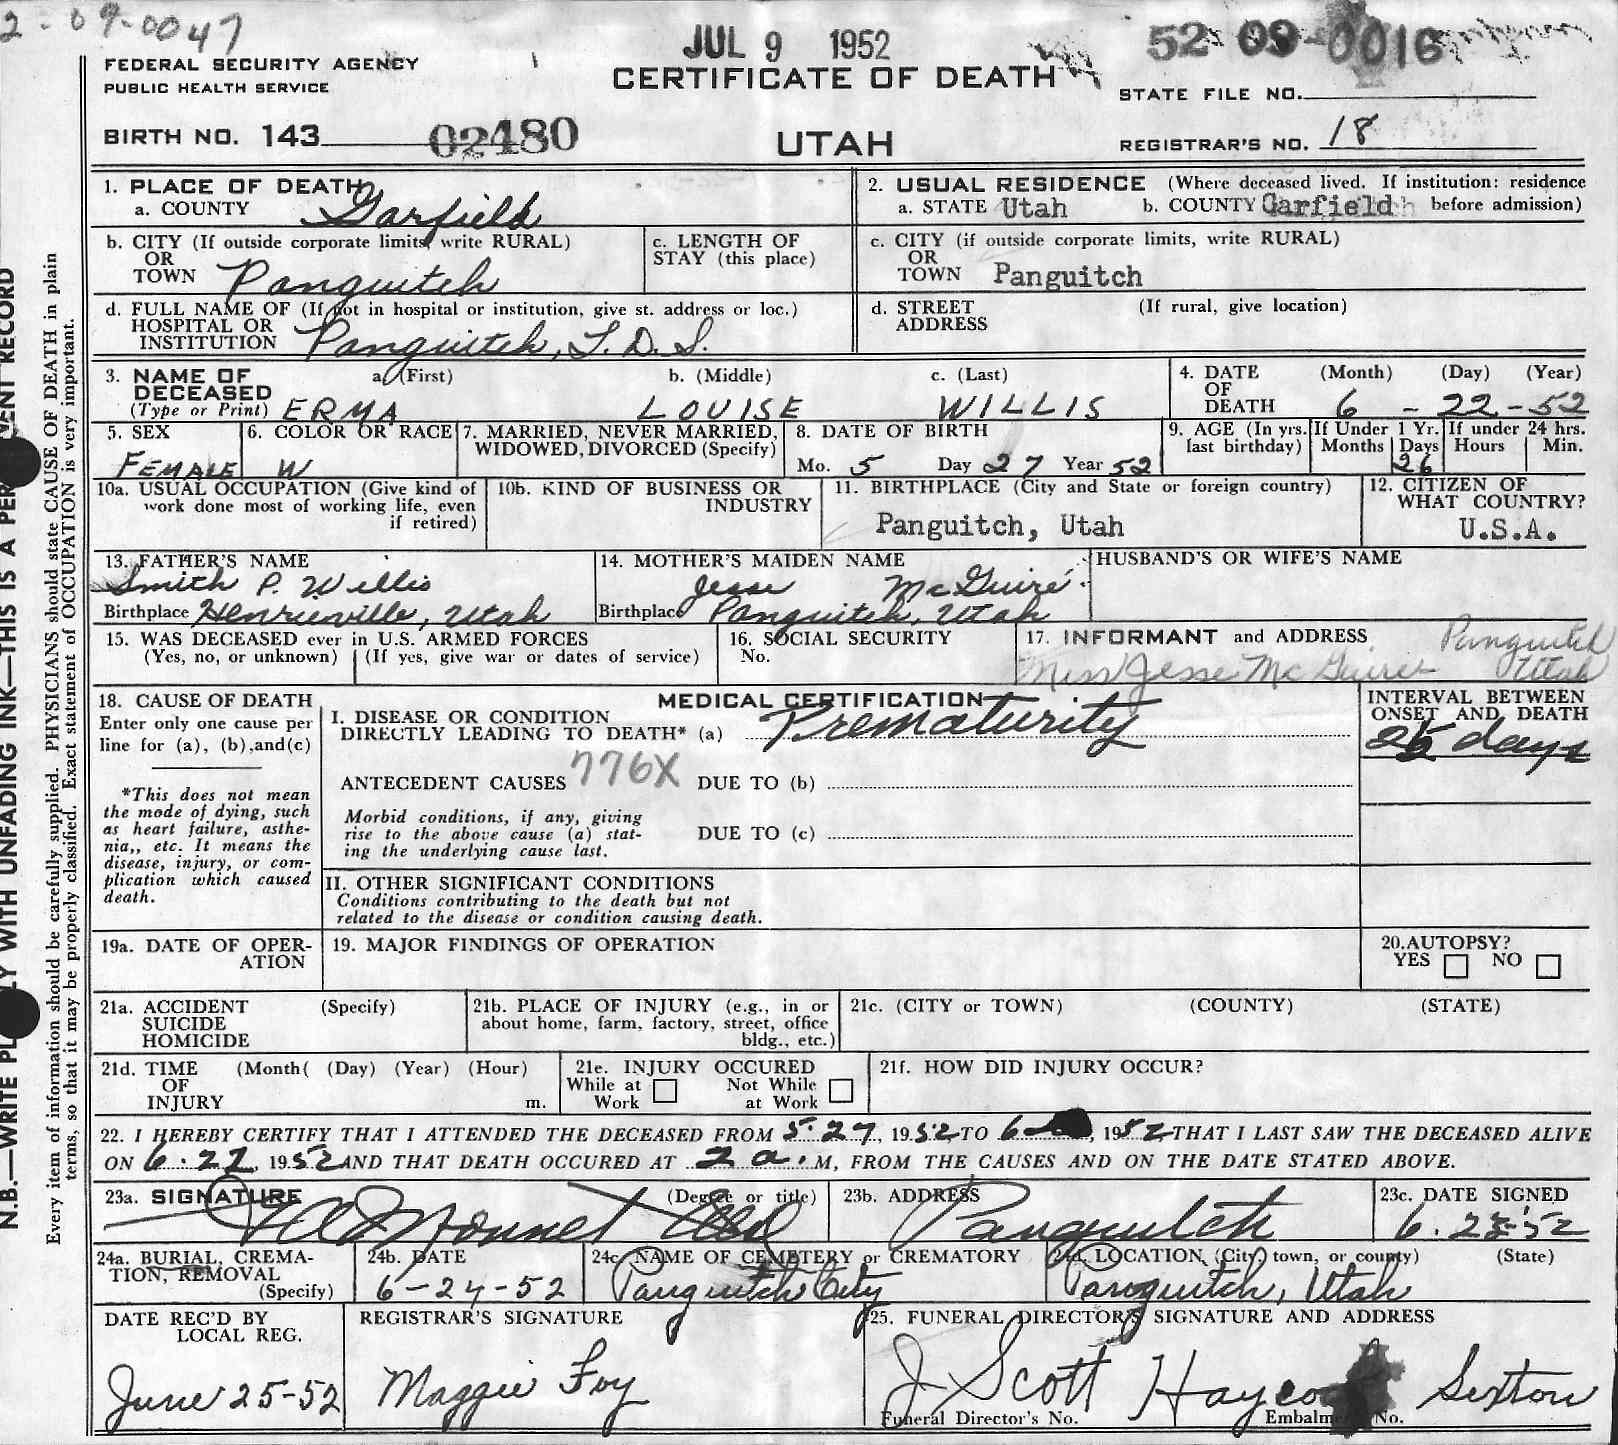 2-09-0047
JUL 9 1952
52 09-0016
FEDERAL SECURITY AGENCY
PUBLIC HEALTH SERVICE
CERTIFICATE OF DEATH
STATE FILE NO.
BIRTH NO. 143 02480
UTAH
REGISTRAR'S NO. 18
1. PLACE OF DEATH
a. COUNTY Garfield
2. USUAL RESIDENCE (Where deceased lived. If institution: residence before admission)
a. STATE Utah b. COUNTY Garfield
b. CITY (If outside corporate limits, write RURAL)
OR
TOWN Panguitch
c. LENGTH OF
STAY (this place)
c. CITY (if outside corporate limits, write RURAL)
OR
TOWN Panguitch
d. FULL NAME OF (If not in hospital or institution, give st. address or loc.)
HOSPITAL OR
INSTITUTION Panguitch, L.D.S.
d. STREET (If rural, give location)
ADDRESS
3. NAME OF a. (First) b. (Middle) c. (Last)
DECEASED
(Type or Print) ERMA LOUISE WILLIS
4. DATE (Month) (Day) (Year)
OF
DEATH 6 - 22 - 52
5. SEX
FEMALE
6. COLOR OR RACE
W
7. MARRIED, NEVER MARRIED,
WIDOWED, DIVORCED (Specify)
8. DATE OF BIRTH
Mo. 5 Day 27 Year 52
9. AGE (In yrs.
last birthday)
If Under 1 Yr.
Months Days
26
If under 24 hrs.
Hours Min.
10a. USUAL OCCUPATION (Give kind of
work done most of working life, even
if retired)
10b. KIND OF BUSINESS OR
INDUSTRY
11. BIRTHPLACE (City and State or foreign country)
Panguitch, Utah
12. CITIZEN OF
WHAT COUNTRY?
U.S.A.
13. FATHER'S NAME
Smith P. Willis
Birthplace Henrieville, Utah
14. MOTHER'S MAIDEN NAME
Jesse McGuire
Birthplace Panguitch, Utah
HUSBAND'S OR WIFE'S NAME
15. WAS DECEASED ever in U.S. ARMED FORCES
(Yes, no, or unknown) (If yes, give war or dates of service)
16. SOCIAL SECURITY
No.
17. INFORMANT and ADDRESS Panguitch
Miss Jesse McGuire Utah
18. CAUSE OF DEATH
Enter only one cause per
line for (a), (b), and (c)
*This does not mean
the mode of dying, such
as heart failure, asthe-
nia,, etc. It means the
disease, injury, or com-
plication which caused
death.
MEDICAL CERTIFICATION
I. DISEASE OR CONDITION
DIRECTLY LEADING TO DEATH* (a) Prematurity
ANTECEDENT CAUSES 776X DUE TO (b)
Morbid conditions, if any, giving
rise to the above cause (a) stat-
ing the underlying cause last.
DUE TO (c)
II. OTHER SIGNIFICANT CONDITIONS
Conditions contributing to the death but not
related to the disease or condition causing death.
INTERVAL BETWEEN
ONSET AND DEATH
days
19a. DATE OF OPER-
ATION
19. MAJOR FINDINGS OF OPERATION
20. AUTOPSY?
YES NO
21a. ACCIDENT (Specify)
SUICIDE
HOMICIDE
21b. PLACE OF INJURY (e.g., in or
about home, farm, factory, street, office
bldg., etc.)
21c. (CITY or TOWN) (COUNTY) (STATE)
21d. TIME (Month( (Day) (Year) (Hour)
OF
INJURY m.
21e. INJURY OCCURED
While at Not While
Work at Work
21f. HOW DID INJURY OCCUR?
22. I HEREBY CERTIFY THAT I ATTENDED THE DECEASED FROM 5-27, 1952 TO 6, 1952 THAT I LAST SAW THE DECEASED ALIVE
ON 6.22, 1952 AND THAT DEATH OCCURED AT 2 a. M, FROM THE CAUSES AND ON THE DATE STATED ABOVE.
23a. SIGNATURE (Degree or title)
23b. ADDRESS
Panguitch
23c. DATE SIGNED
24a. BURIAL, CREMA-
TION, REMOVAL
(Specify)
24b. DATE
6-24-52
24c. NAME OF CEMETERY or CREMATORY
Panguitch City
24d. LOCATION (City, town, or county) (State)
Panguitch, Utah
DATE REC'D BY
LOCAL REG.
June 25-52
REGISTRAR'S SIGNATURE
Maggie Foy
25. FUNERAL DIRECTOR'S SIGNATURE AND ADDRESS
J Scott Sexton
Funeral Director's No. Embalmer's No.
N.B.—WRITE PLAINLY WITH UNFADING INK—THIS IS A PERMANENT RECORD
Every item of information should be carefully supplied. PHYSICIANS should state CAUSE OF DEATH in plain
terms, so that it may be properly classified. Exact statement of OCCUPATION is very important.